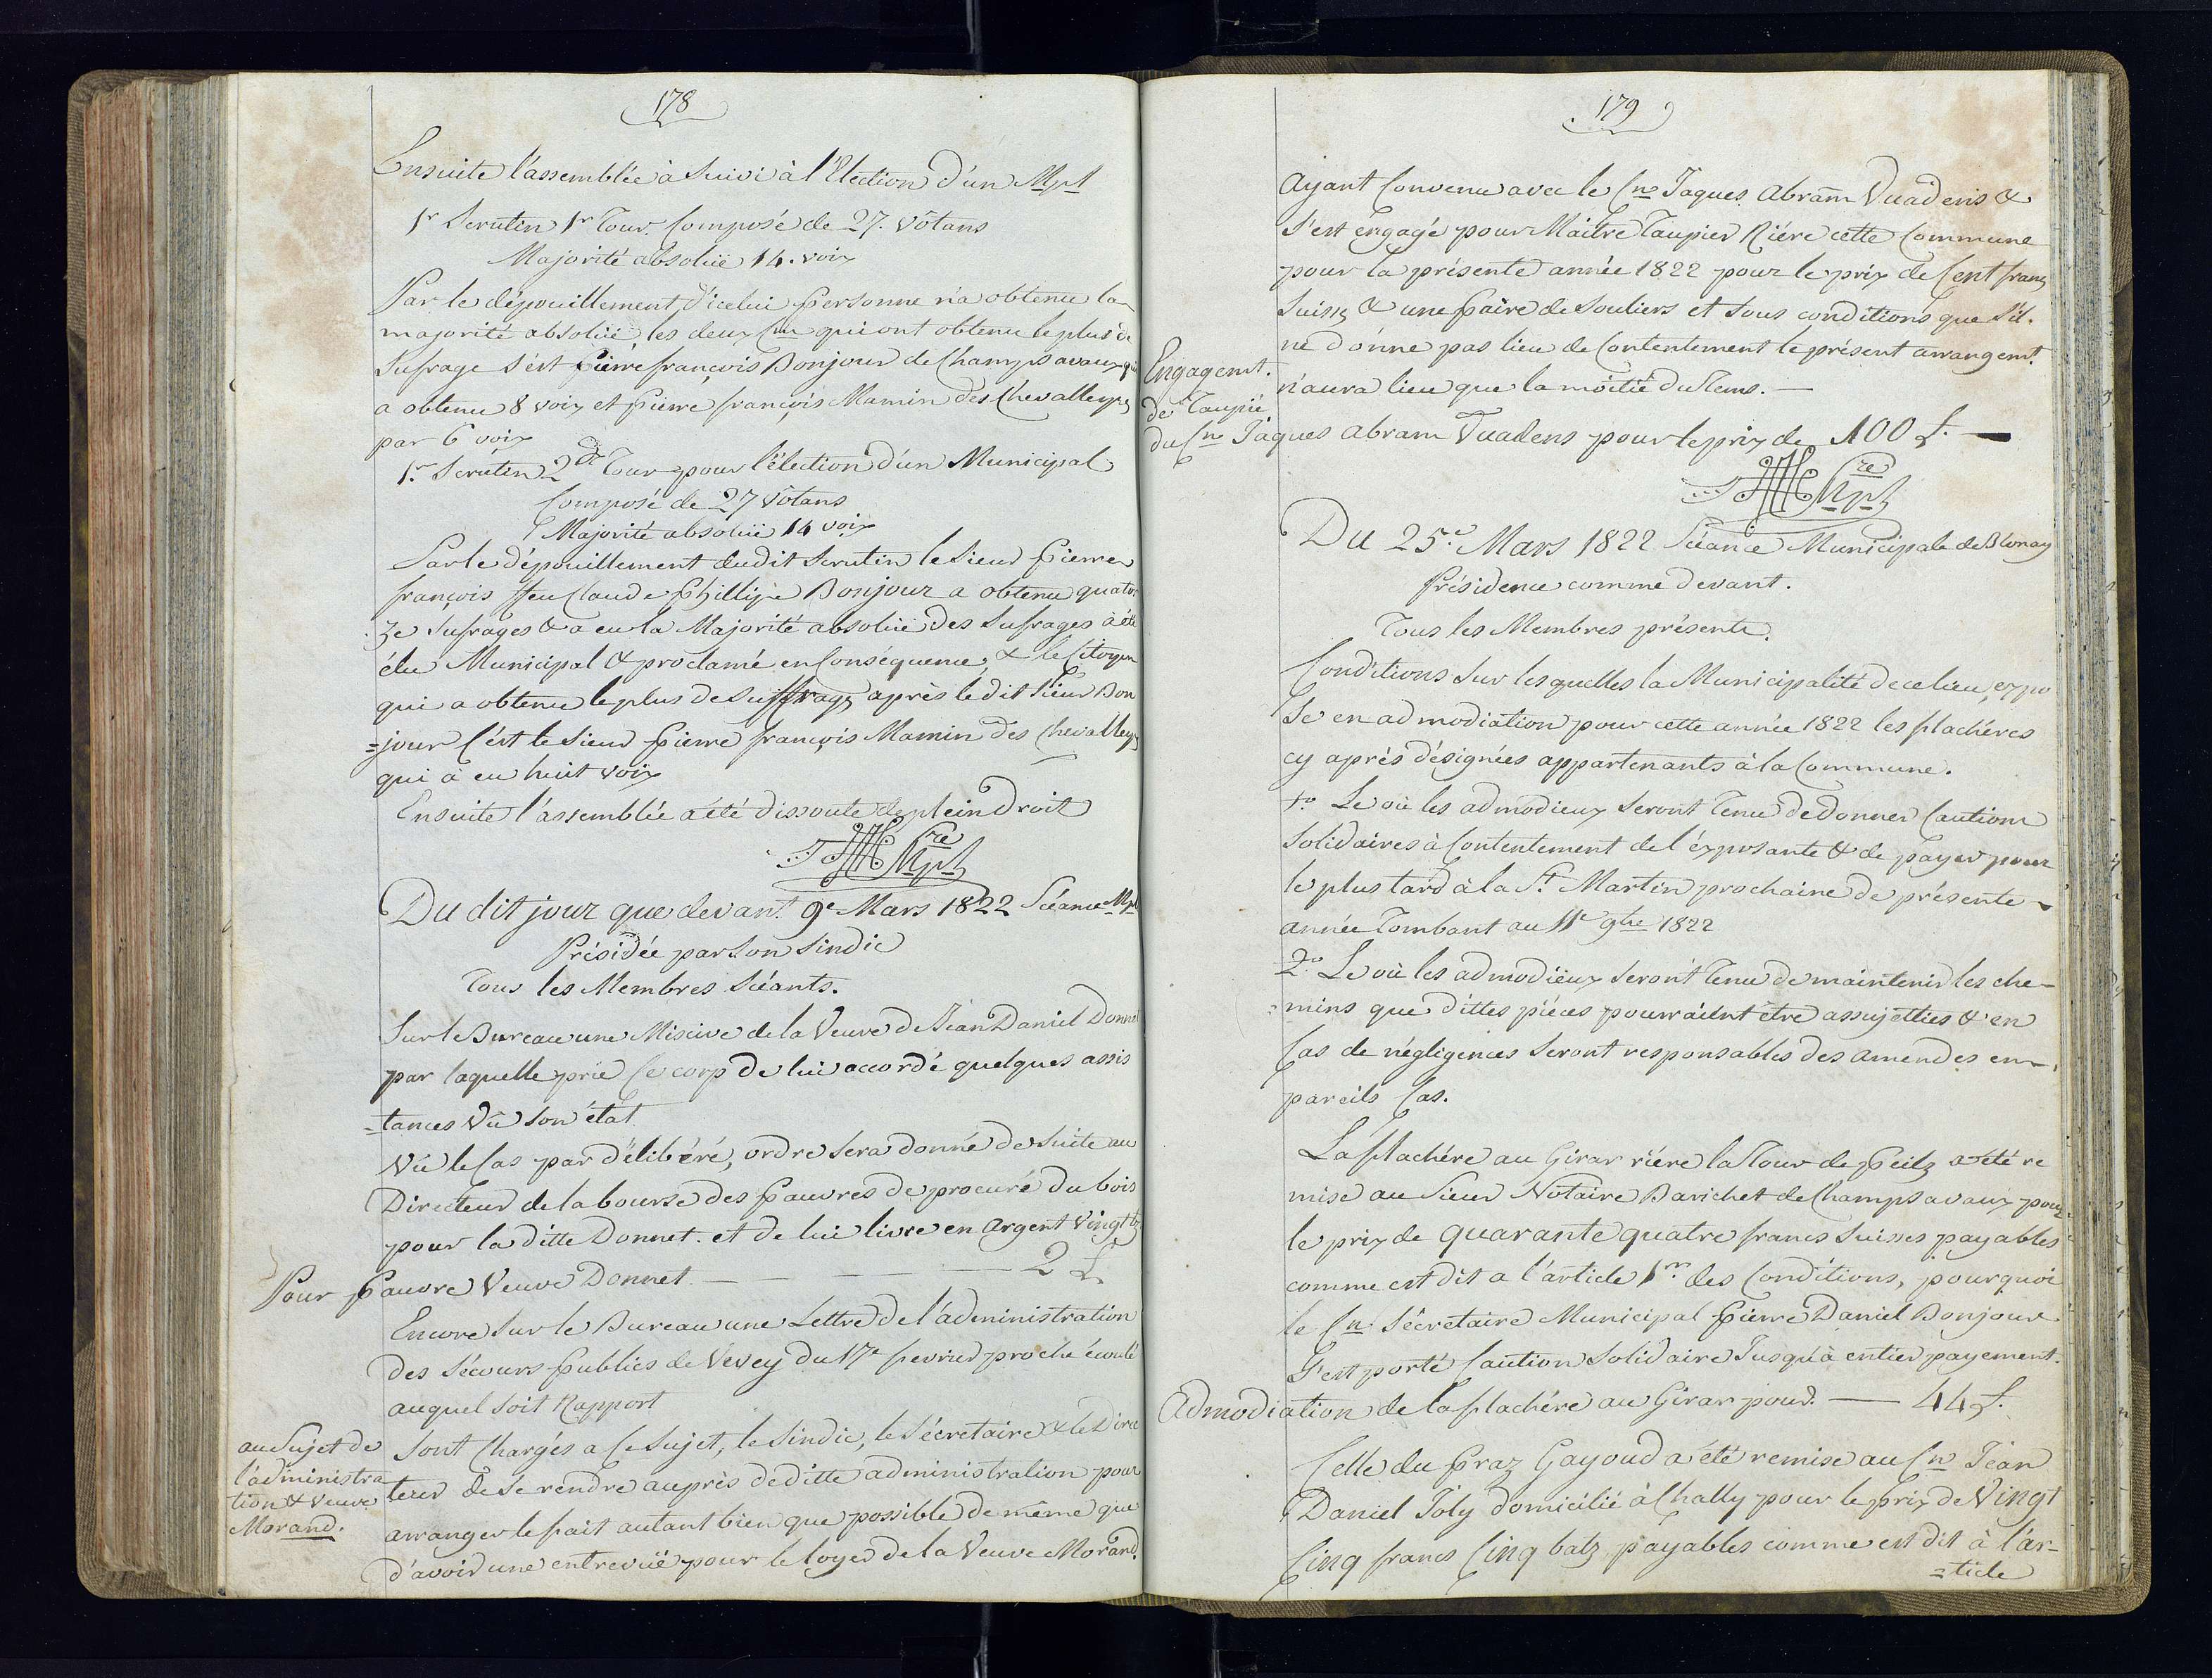 178
Ensuite l'assemblée à suivi à l'Election d'un Mpl
1r Scrutin 1r Tour. Composé de 27. Vôtans
Majorité absolüe 14. voix
Par le dépouillement d'icelui personne n'a obtenu la
majorité absolüe, les deux Cns qui ont obtenu le plus de
sufrage s'est Pierre françois Bonjour de Champsavaux qui
a obtenu 8 voix et Pierre françois Mamin des Chevalleyres
par 6 voix
1r Scrutin 2d Tour pour l'élection d'un Municipal
Composé de 27 Vôtans
Majorité absolüe 14 voix
Par le dépouillement dudit Scrutin le Sieur Pierre
françois ffeu Claude Phillipe Bonjour a obtenu quator
ze sufrages & a eu la Majorité absolüe des sufrages à été
élu Municipal & proclamé en Conséquence, & le Citoyen
qui a obtenu le plus de suffrages après le dit sieur Bon
=jour C'est le Sieur Pierre françois Mamin des Chevalleyres
qui à eu huit voix
Ensuite l'assemblée a été dissoute de plein droit
Cre Mpl
Du dit jour que devant 9e Mars 1822 Séance Mpl
Présidée par son Sindic
Tous les Membres Séants.
Sur le Bureau une Misive de la Veuve de Jean Daniel Donnet
par laquelle prie ce corp de lui accordé quelques assis
=tances Vû son état
Vû le Cas par délibéré, ordre sera donné de suite au
Directeur de la bourse des Pauvres de procuré du bois
pour la ditte Donnet. et de lui livré en Argent Vingt bz
Pour Pauvre Veuve Donnet. — — — — 2 £
Encore sur le Bureau une Lettre de l'administration
des sécours Publics de Vevey du 17e fevrier proche écoulé
auquel soit Rapport
au Sujet de
l'administra
tion & veuve
Morand.
Sont Chargés a ce sujet, le Sindic, le Sécretaire & le Direc
teur de se rendre auprès de ditte administration pour
arranger le fait autant bien que possible de même que
d'avoir une entrevüe pour le loyer de la Veuve Morand.
179
Ayant Convenu avec le Cn Jaques Abram Vuadens &
s'est engagé pour Maitre Taupier Riére cette Commune
pour la présente année 1822 pour le prix de Cent francs
Suisses & une paire de souliers et sous conditions que s'il
ne donne pas lieu de Contentement le présent arrangemt
n'aura lieu que la moitié du Tems. —
Engagemt.
de Taupié
du Cn Jaques Abram Vuadens pour le prix de 100 £. —
Cre Mpl
Du 25e Mars 1822 Séance Municipale de Blonay
Présidence comme devant.
Tous les Membres présents.
Conditions sur lesquelles la Municipalité de ce lieu, expo
se en admodiation pour cette année 1822 les flachéres
cy après désignées appartenants à la Commune.
1o. Le où les admodieux seront Tenu de donner Cautions
Solidaires à Contentement de l'éxposante & de payer pour
le plus tard à la St Martin prochaine de présente
année Tombant au 11e 9bre 1822
2o. Le où les admodiéux seront Tenu de maintenir les che-
=mins que dittes piéces pourraient être assujetties & en
Cas de négligences seront responsables des amendes en
pareils Cas.
La flachére au Girar riére la Tour de Peilz a été re
mise au Sieur Notaire Barichet de Champsavaux pour
le prix de quarante quatre francs Suisses payables
comme est dit a l'article 1er. des Conditions, pourquoi
le Cn Sécretaire Municipal Pierre Daniel Bonjour
s'est porté Caution Solidaire Jusqu'à entier payement.
Admodiation de la flachére au Girar pour. — 44 £.
Celle du Praz Gayoud a été remise au Cn Jean
Daniel Joly domicilié à Chally pour le prix de Vingt
Cinq francs Cinq batz payables comme est dit à l'ar-
=ticle